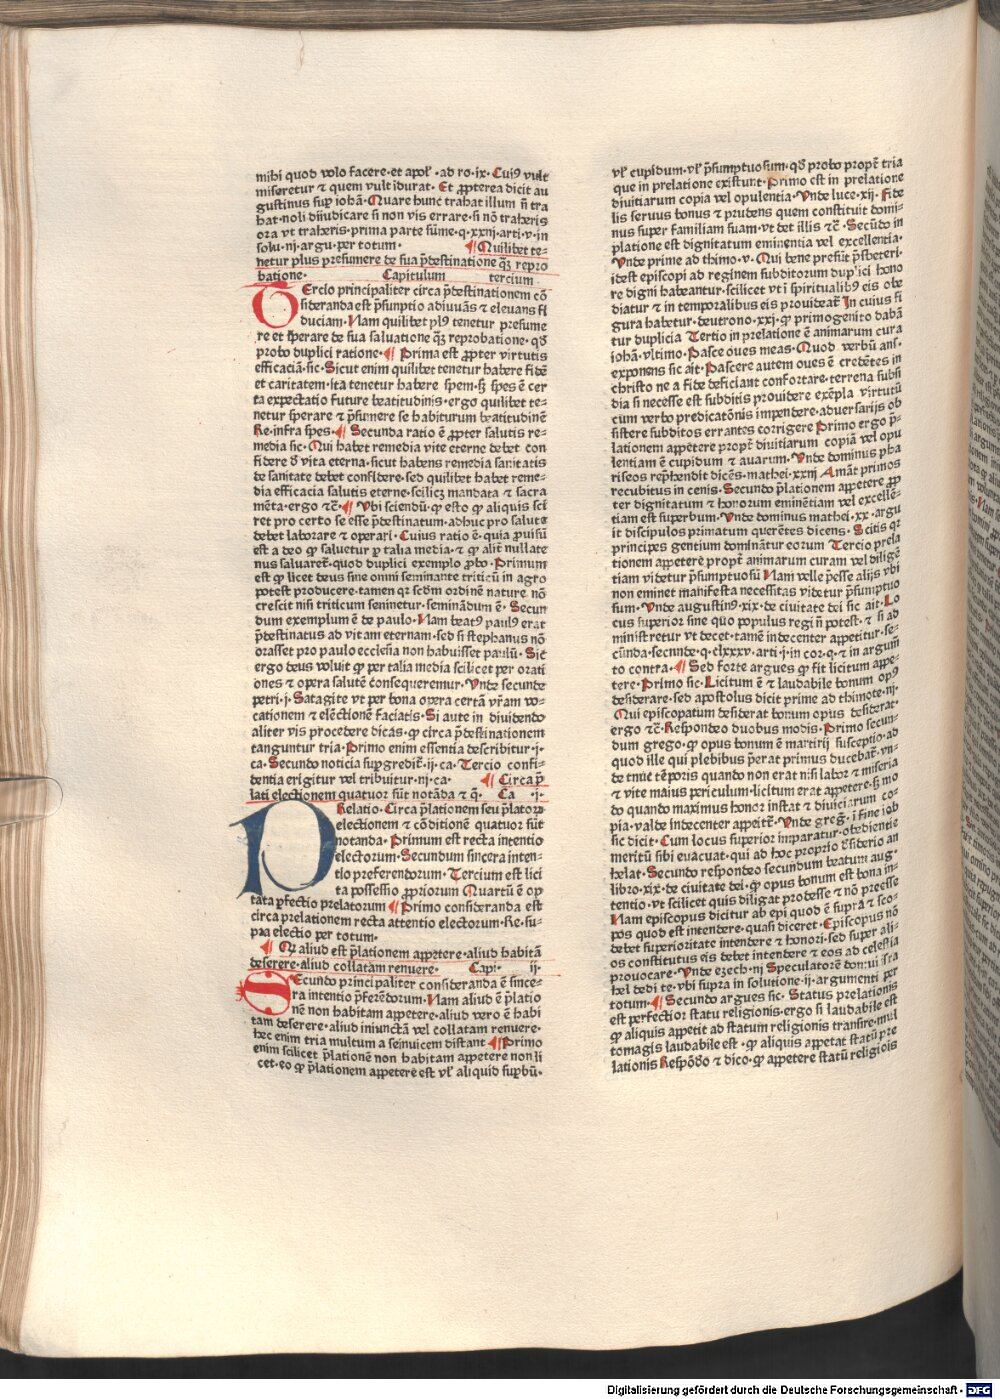 mihi quod volo facere·et apoł·ad ro·ix·Cuiꝰ vult
miseretur ⁊ quem vult īdurat·Et ꝓpterea dicit au
gustinus suꝑ iohā·Quare hunc trahat illum nō tra
hat·noli diiudicare si non vis errare·si nō traheris
ora vt traheris·prima parte sūme·q·xxnj·arti·v·in
solu·nj·argu·per totum· ¶Quilibet te-
netur plus presumere de sua p̄destinatione qȝ repro
batione· Capitulum tercium
TErcio principaliter circa p̄destinationem cō
sideranda est p̄sunptio adiuuās ⁊ eleuans fi
duciam·Nam quilibet plꝰ tenetur presume
re et sperare de sua saluatione qȝ reprobatione·qđ
probo duplici ratione·¶Prima est ꝓpter virtutis
efficaciā·sic·Sicut enim quilibet tenetur habere fidē
et caritatem·ita tenetur habere spem·sȝ spes ē cer
ta expectatio future beatitudinis·ergo quilibet te-
netur sperare ⁊ p̄sumere se habiturum beatitudinē
Re·infra spes·¶Secunda ratio ē ꝓpter salutis re-
media sic·Qui habet remedia vite eterne debet con
fidere đ vita eterna·sicut habens remedia sanitatis
de sanitate debet confidere·sed quilibet habet reme-
dia efficacia salutis eterne·scilicȝ mandata ⁊ sacra
mēta·ergo ⁊c̄·¶Vbi sciendū·ꝙ esto ꝙ aliquis sci
ret pro certo se esse p̄destinatum·adhuc pro salute
debet laborare ⁊ operari·Cuius ratio ē·quia ꝓuisū
est a deo ꝙ saluetur ꝑ talia media·⁊ ꝙ alit̄ nullate
nus saluaret̄·quod duplici exemplo ꝓbo·Primum
est ꝙ licet deus sine omni seminante triticū in agro
potest producere·tamen qꝛ scđm ordinē nature nō
crescit nisi triticum seminetur·seminādum ē·Secun
dum exemplum ē de paulo·Nam beatꝰ paulꝰ erat
p̄destinatus ad vitam eternam·sed si stephanus nō
orasset pro paulo ecclesia non habuisset paulū·Sic
ergo deus voluit ꝙ per talia media scilicet per orati
ones ⁊ opera salutē consequeremur·Vnde secunde
petri·j·Satagite vt per bona opera certā vr̄am vo-
cationem ⁊ electionē faciatis·Si aute in diuidendo
aliter vis procedere dicas·ꝙ circa p̄destinationem
tanguntur tria·Primo enim essentia describitur·j·
ca·Secundo noticia suꝑgredit̄·ij·ca·Tercio confi-
dentia erigitur vel tribuitur·nj·ca· ¶Circa p̄
lati electionem quatuor sūt notāda ⁊ q̄· Ca ·j·
PRelatio·Circa p̄lationem seu p̄latorū
electionem ⁊ cōditionē quatuor sūt
notanda·Primum est recta intentio
electorum·Secundum sincera inten-
tio preferendorum·Tercium est lici
ta possessio ꝓpriorum Quartū ē op
tata ꝑfectio prelatorum ¶Primo consideranda est
circa prelationem recta attentio electorum·Re·su-
pra electio per totum·
¶Qꝙ aliud est p̄lationem appetere·aliud habitā
deserere·aliud collatam renuere· Capł· ij·
SEcundo principaliter consideranda ē since-
ra intentio p̄ferēdorum·Nam aliud ē p̄latio
nē non habitam appetere·aliud vero ē habi
tam deserere·aliud iniunctā vel collatam renuere·
hec enim tria multum a seinuicem distant ¶Primo
enim scilicet p̄lationē non habitam appetere non li
cet·eo ꝙ p̄lationem appetere est vł aliquid suꝑbū·
vł cupidum·vł p̄sumptuosum·qđ probo propt̄ tria
que in prelatione existunt·Primo est in prelatione
diuitiarum copia vel opulentia·Vnde luce·xij·Fide
lis seruus bonus ⁊ prudens quem constituit domi-
nus super familiam suam·vt det illis ⁊c̄·Secūdo in
p̄latione est dignitatum eminentia vel excellentia·
Vnde prime ad thimo·v·Qui bene presūt p̄sbeteri·
idest episcopi ad reginem subditorum duplici hono
re digni habeantur·scilicet vt ī spiritualibꝰ eis obe
diatur ⁊ in temporalibus eis prouideat̄ In cuius fi
gura habetur·deutrono·xxj·ꝙ primogenito dabā
tur duplicia Tertio in prelatione ē animarum cura
iohā·vltimo·Pasce oues meas·Quod verbū ans·
exponens sic ait·Pascere autem oues ē credētes in
christo ne a fide deficiant confortare·terrena subsi
dia si necesse est subditis prouidere exēpla virtutū
cum verbo predicatōnis impendere·aduersarijs ob
sistere subditos errantes corrigere Primo ergo p̄-
lationem appetere propt̄ diuitiarum copiā vel opu
lentiam ē cupidum ⁊ auarum·Vnde dominus pha
riseos rep̄hendit dicēs·mathei·xxnj Amāt primos
recubitus in cenis·Secundo p̄lationem appetere ꝓp
ter dignitatum ⁊ honorum eminētiam vel excellē-
tiam est superbum·Vnde dominus mathei·xx·argu
it discipulos primatum querētes dicens·Scitis qꝛ
principes gentium dominātur eorum Tercio prela
tionem appetere propt̄ animarum curam vel diligē
tiam videtur p̄sumptuosū Nam velle p̄esse alijs vbi
non eminet manifesta necessitas videtur p̄sumptuo
sum·Vnde augustinꝰ·xix·de ciuitate dei sic ait·Lo
cus superior sine quo populus regi nō potest·⁊ si ad
ministretur vt decet·tamē indecenter appetitur·se-
cūnda·secnnde·q·clxxxv·arti·j·in cor·q·⁊ in argum
to contra·¶Sed forte argues ꝙ sit licitum appe-
tere·Primo sic·Licitum ē ⁊ laudabile bonum opꝰ
desiderare·sed apostolus dicit prime ad thimote·nj·
Qui episcopatum desiderat bonum opus desiderat·
ergo ⁊c̄·Respondeo duobus modis·Primo secun-
dum grego·ꝙ opus bonum ē martirij susceptio·ad
quod ille qui plebibus p̄erat primus ducebat̄·vn-
de tmuc tēporis quando non erat nisi labor ⁊ miseria
⁊ vite maius periculum·licitum erat appetere·sȝ mo
do quando maximus honor instat ⁊ diuiciarum co-
pia·valde indecenter appetit̄·Vnde greg̅·ī fine iob
sic dicit·Cum locus superior imparatur·obedientie
meritū sibi euacuat·qui ad hoc proprio đsiderio an
helat·Secundo respondeo secundum beatum aug·
libro·xix·de ciuitate dei·ꝙ opus bonum est bona in-
tentio·vt scilicet quis diligat prodesse ⁊ nō preesse
Nam episcopus dicitur ab epi quod ē supra ⁊ sco-
pos quod est intendere·quasi diceret·Episcopus nō
debet superioritate intendere ⁊ honori·sed super ali-
os constitutus eis debet intendere ⁊ eos ad celestia
prouocare·Vnde ezech·nj Speculatorē domui isra
hel dedi te·vbi supra in solutione·ij·argumenti per
totum·¶Secundo argues sic·Status prelationis
est perfectior statu religionis·ergo si laudabile est
ꝙ aliquis appetit ad statum religionis transire·mul
tomagis laudabile est·ꝙ aliquis appetat statū pre
lationis Respōđo ⁊ dico·ꝙ appetere statū religiois
Digitalisierung gefördert durch die Deutsche Forschungsgemeinschaft - DFG